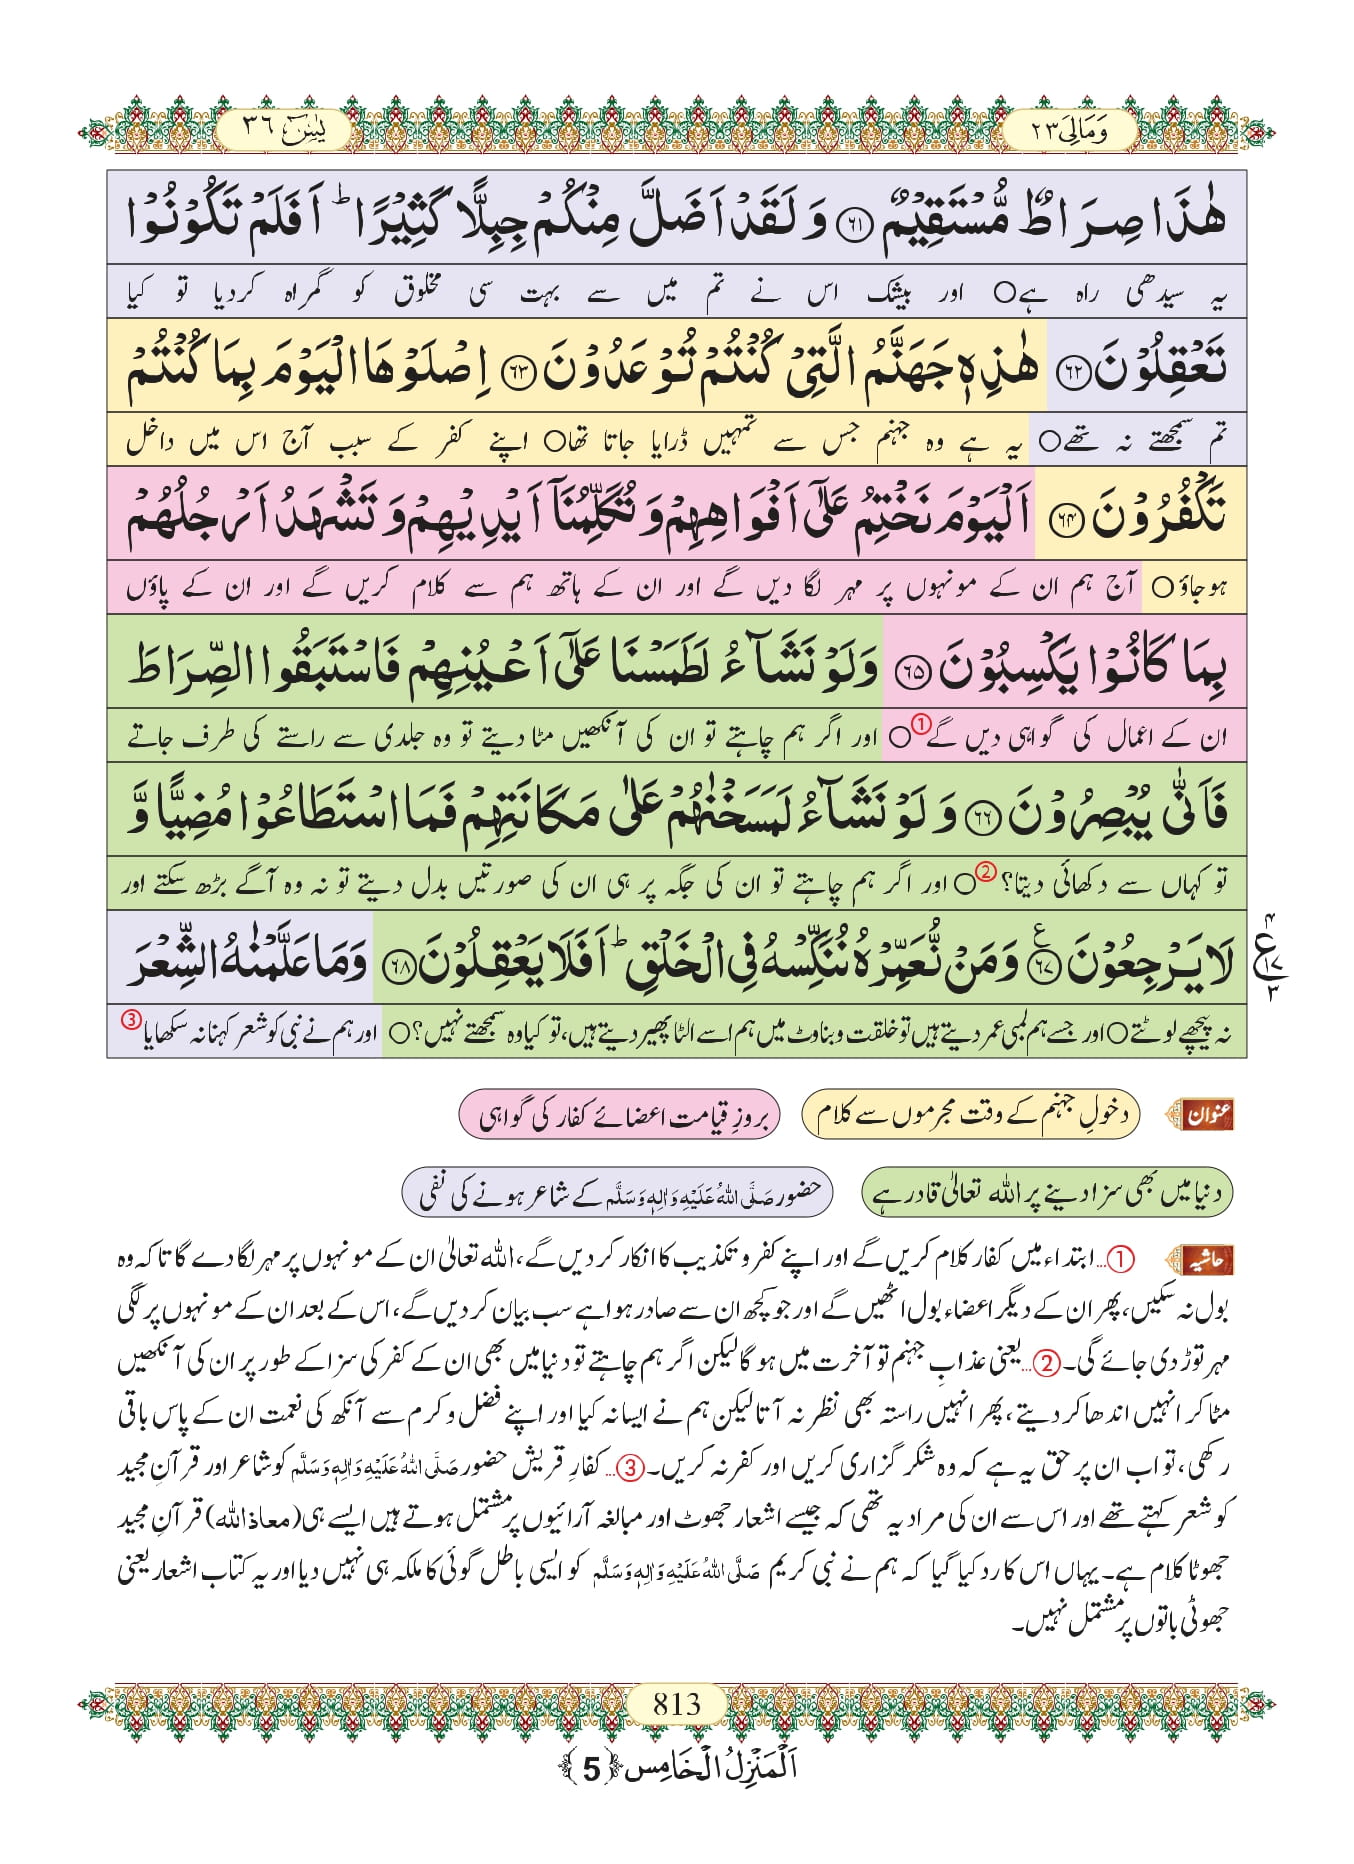 وَمَالِیَ ۲۳
یٰسٓ ۳۶
هٰذَا صِرَاطٌ مُّسْتَقِیْمٌ ﴿۶۱﴾ وَ لَقَدْ اَضَلَّ مِنْكُمْ جِبِلًّا كَثِیْرًاؕ اَفَلَمْ تَكُوْنُوْا
یہ سیدھی راہ ہے○ اور بیشک اس نے تم میں سے بہت سی مخلوق کو گمراہ کردیا تو کیا
تَعْقِلُوْنَ ﴿۶۲﴾ هٰذِهٖ جَهَنَّمُ الَّتِیْ كُنْتُمْ تُوْعَدُوْنَ ﴿۶۳﴾ اِصْلَوْهَا الْیَوْمَ بِمَا كُنْتُمْ
تم سمجھتے نہ تھے○ یہ ہے وہ جہنم جس سے تمہیں ڈرایا جاتا تھا○ اپنے کفر کے سبب آج اس میں داخل
تَكْفُرُوْنَ ﴿۶۴﴾ اَلْیَوْمَ نَخْتِمُ عَلٰۤى اَفْوَاهِهِمْ وَ تُكَلِّمُنَاۤ اَیْدِیْهِمْ وَ تَشْهَدُ اَرْجُلُهُمْ
ہوجاؤ○ آج ہم ان کے مونہوں پر مہر لگا دیں گے اور ان کے ہاتھ ہم سے کلام کریں گے اور ان کے پاؤں
بِمَا كَانُوْا یَكْسِبُوْنَ ﴿۶۵﴾ وَ لَوْ نَشَآءُ لَطَمَسْنَا عَلٰۤى اَعْیُنِهِمْ فَاسْتَبَقُوا الصِّرَاطَ
ان کے اعمال کی گواہی دیں گے①○ اور اگر ہم چاہتے تو ان کی آنکھیں مٹا دیتے تو وہ جلدی سے راستے کی طرف جاتے
فَاَنّٰى یُبْصِرُوْنَ ﴿۶۶﴾ وَ لَوْ نَشَآءُ لَمَسَخْنٰهُمْ عَلٰى مَكَانَتِهِمْ فَمَا اسْتَطَاعُوْا مُضِیًّا وَّ
تو کہاں سے دکھائی دیتا؟②○ اور اگر ہم چاہتے تو ان کی جگہ پر ہی ان کی صورتیں بدل دیتے تو نہ وہ آگے بڑھ سکتے اور
لَا یَرْجِعُوْنَ ﴿۶۷﴾ع وَ مَنْ نُّعَمِّرْهُ نُنَكِّسْهُ فِی الْخَلْقِؕ اَفَلَا یَعْقِلُوْنَ ﴿۶۸﴾ وَ مَا عَلَّمْنٰهُ الشِّعْرَ
۴
ع
۱۷
۳
نہ پیچھے لوٹتے○ اور جسے ہم لمبی عمر دیتے ہیں تو خلقت و بناوٹ میں ہم اسے الٹا پھیر دیتے ہیں، تو کیا وہ سمجھتے نہیں؟○ اور ہم نے نبی کو شعر کہنا نہ سکھایا③
عنوان دخولِ جہنم کے وقت مجرموں سے کلام بروزِ قیامت اعضائے کفار کی گواہی
دنیا میں بھی سزا دینے پر اللہ تعالیٰ قادر ہے حضور صَلَّی اللهُ عَلَیْهِ وَاٰلِهٖ وَسَلَّم کے شاعر ہونے کی نفی
حاشیہ ①...ابتداء میں کفار کلام کریں گے اور اپنے کفر و تکذیب کا انکار کر دیں گے، اللہ تعالیٰ ان کے مونہوں پر مہر لگا دے گا تاکہ وہ
بول نہ سکیں، پھر ان کے دیگر اعضاء بول اٹھیں گے اور جو کچھ ان سے صادر ہوا ہے سب بیان کر دیں گے، اس کے بعد ان کے مونہوں پر لگی
مہر توڑ دی جائے گی۔②...یعنی عذابِ جہنم تو آخرت میں ہو گا لیکن اگر ہم چاہتے تو دنیا میں بھی ان کے کفر کی سزا کے طور پر ان کی آنکھیں
مٹا کر انہیں اندھا کر دیتے، پھر انہیں راستہ بھی نظر نہ آتا لیکن ہم نے ایسا نہ کیا اور اپنے فضل و کرم سے آنکھ کی نعمت ان کے پاس باقی
رکھی، تو اب ان پر حق یہ ہے کہ وہ شکر گزاری کریں اور کفر نہ کریں۔③...کفارِ قریش حضور صَلَّی اللهُ عَلَیْهِ وَاٰلِهٖ وَسَلَّم کو شاعر اور قرآنِ مجید
کو شعر کہتے تھے اور اس سے ان کی مراد یہ تھی کہ جیسے اشعار جھوٹ اور مبالغہ آرائیوں پر مشتمل ہوتے ہیں ایسے ہی (معاذ اللہ) قرآنِ مجید
جھوٹا کلام ہے۔ یہاں اس کا رد کیا گیا کہ ہم نے نبی کریم صَلَّی اللهُ عَلَیْهِ وَاٰلِهٖ وَسَلَّم کو ایسی باطل گوئی کا ملکہ ہی نہیں دیا اور یہ کتاب اشعار یعنی
جھوٹی باتوں پر مشتمل نہیں۔
813
اَلْمَنْزِلُ الْخَامِس ﴿5﴾